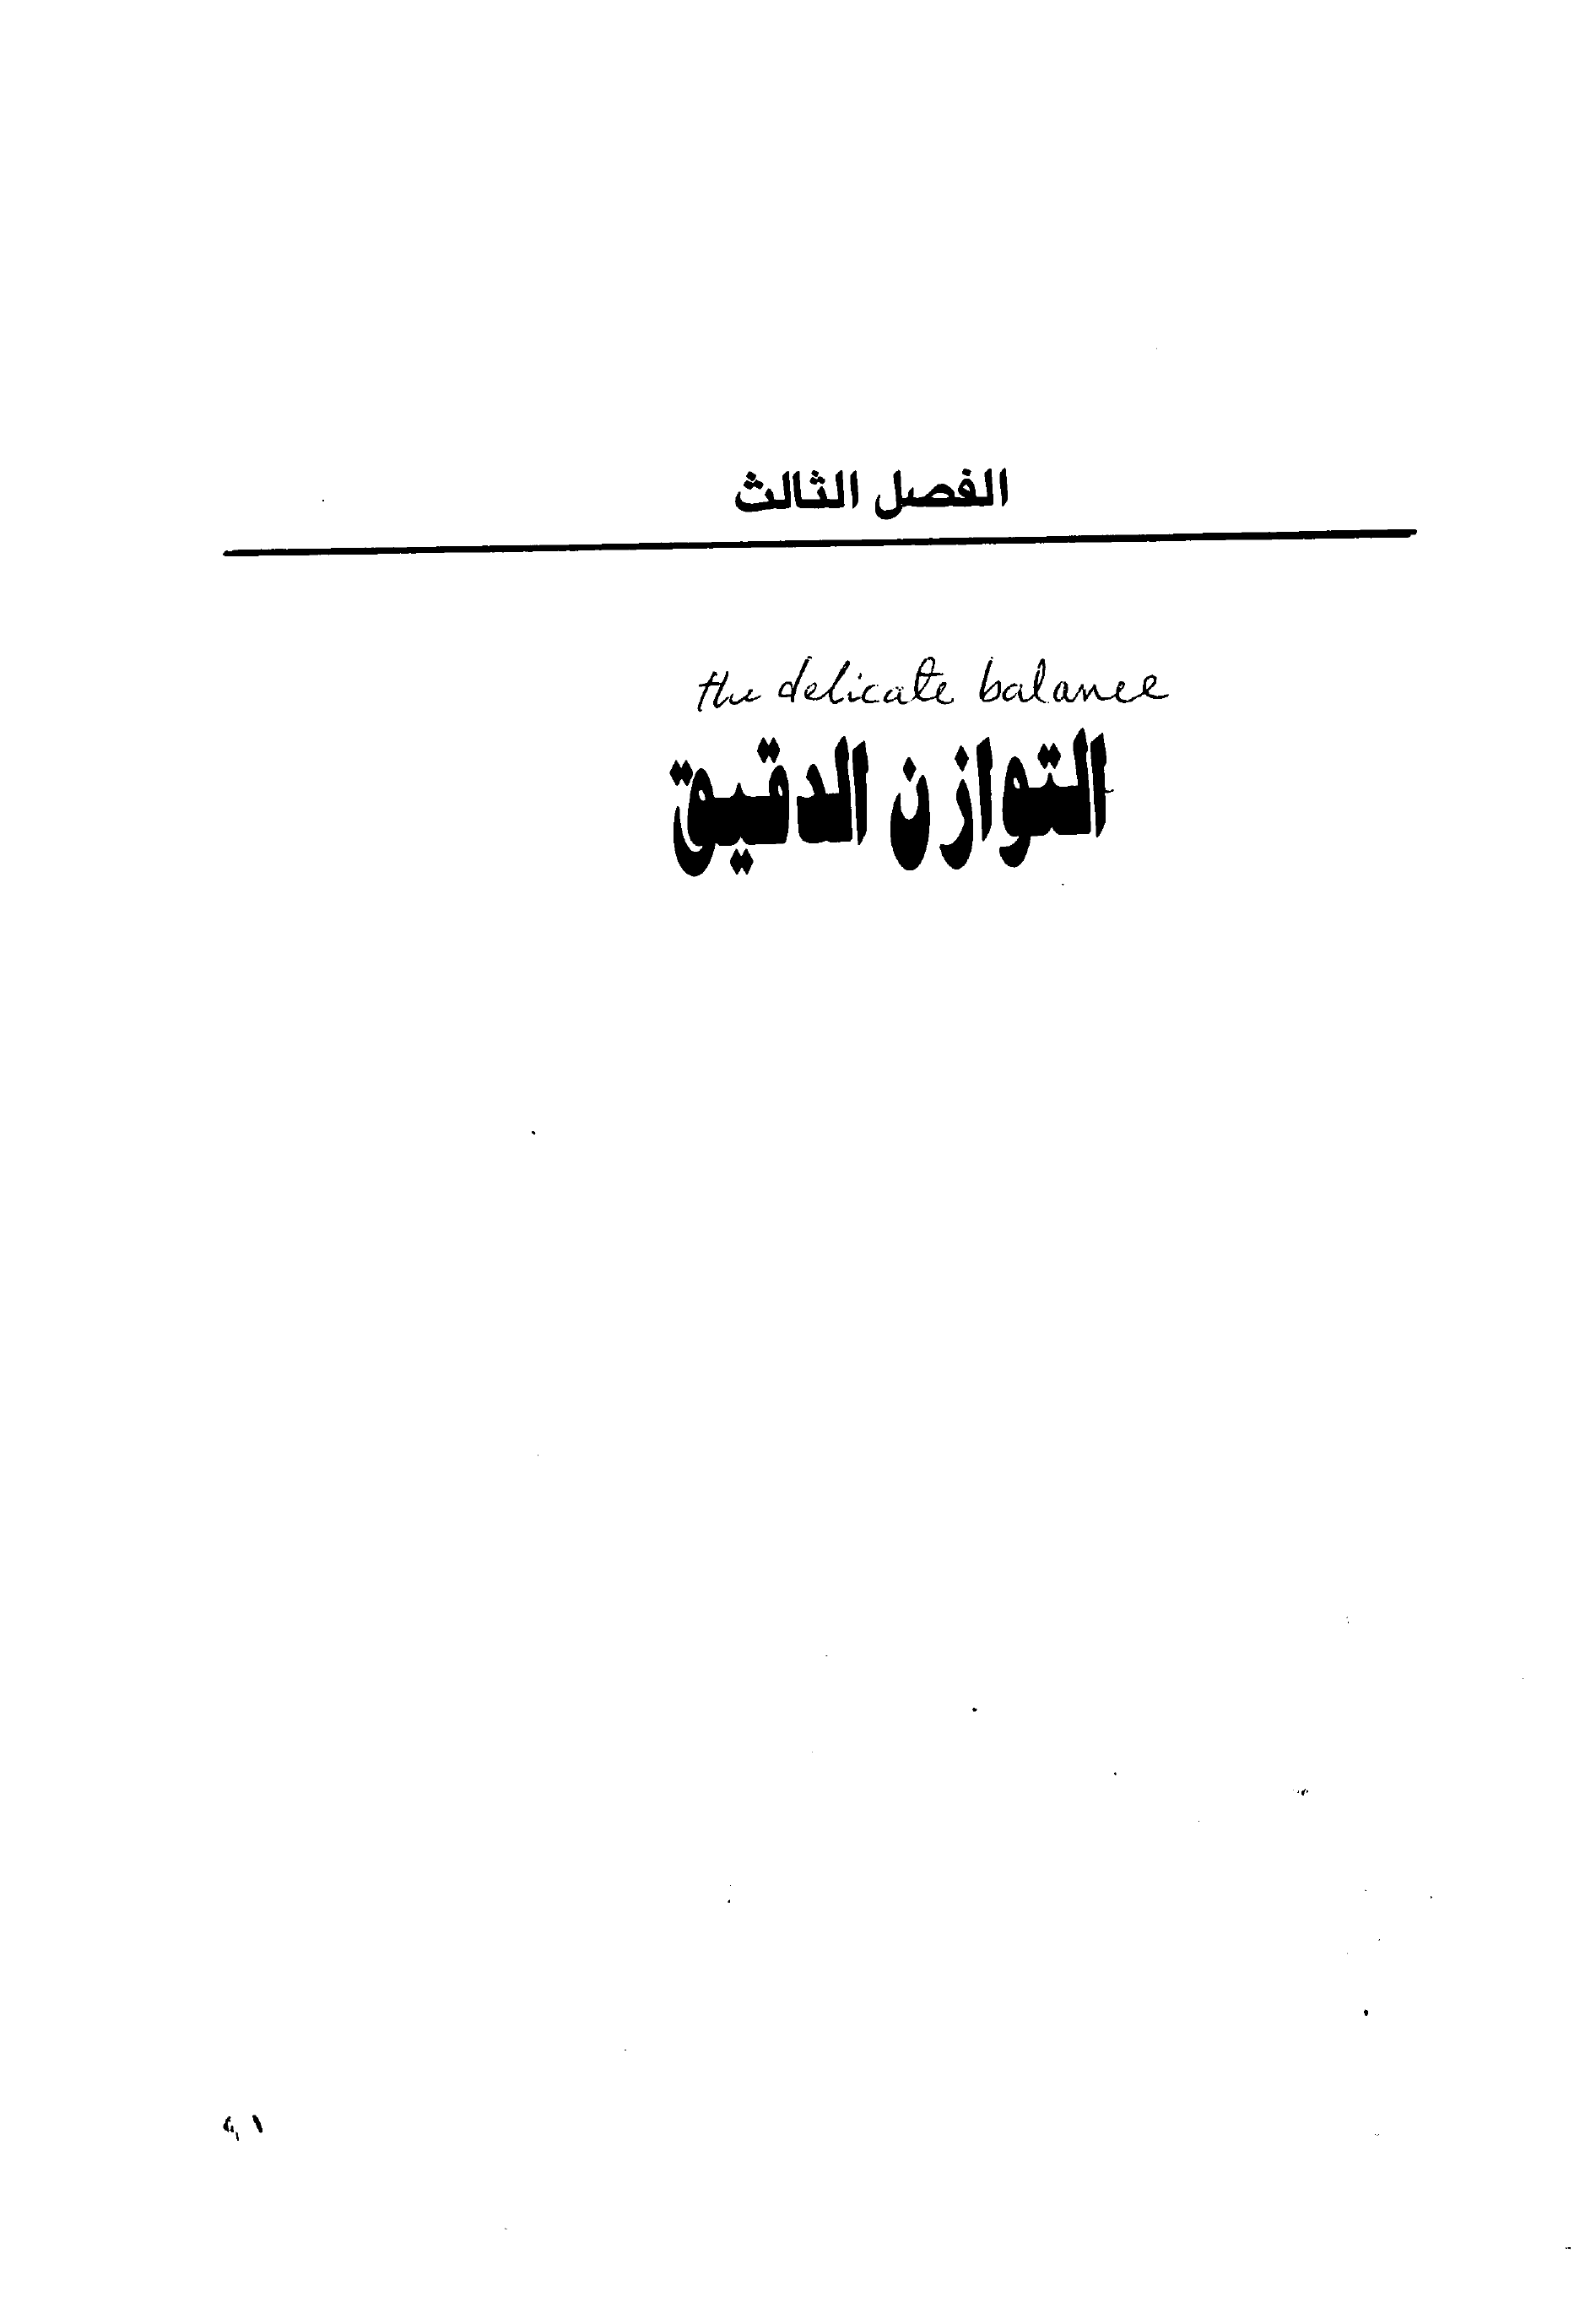 الفصل الثالث
the delicate balance
التوازن الدقيق